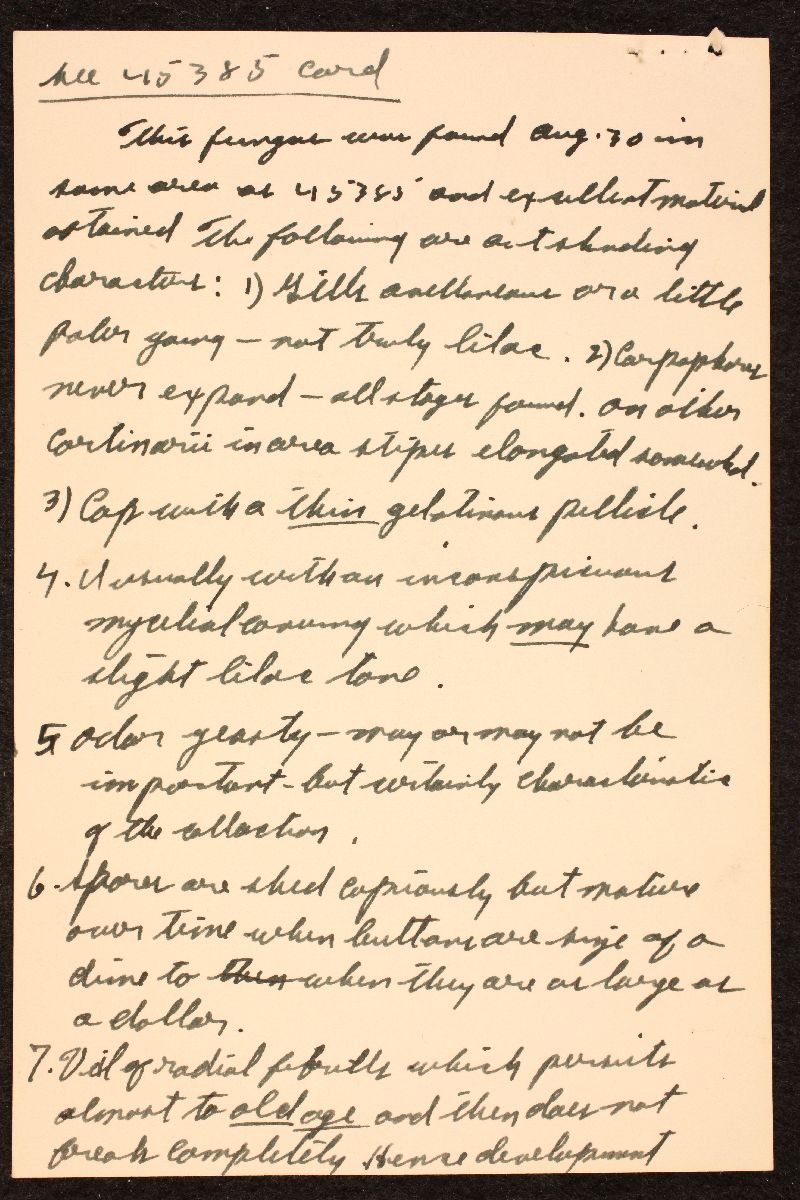 see 45385 card
This fungus was found Aug. 30 in
same area as 45385 and excellent material
obtained The following are outstanding
characters: 1) Gills avellaneous or a little
paler young — not truly lilac. 2) Carpophores
never expand — all stages found. On other
Cortinarii in area stipes elongated somewhat.
3) Cap with a thin gelatinous pellicle.
4. usually with an inconspicuous
mycelial covering which may have a
slight lilac tone.
5 Odor yeasty — may or may not be
important - but certainly characteristic
of the collection.
6. Spores are shed copiously but mature
over time when buttons are size of a
dime to when they are as large as
a dollar.
7. Veil of radial fibrils which persists
almost to old age and then does not
break completely Hence development